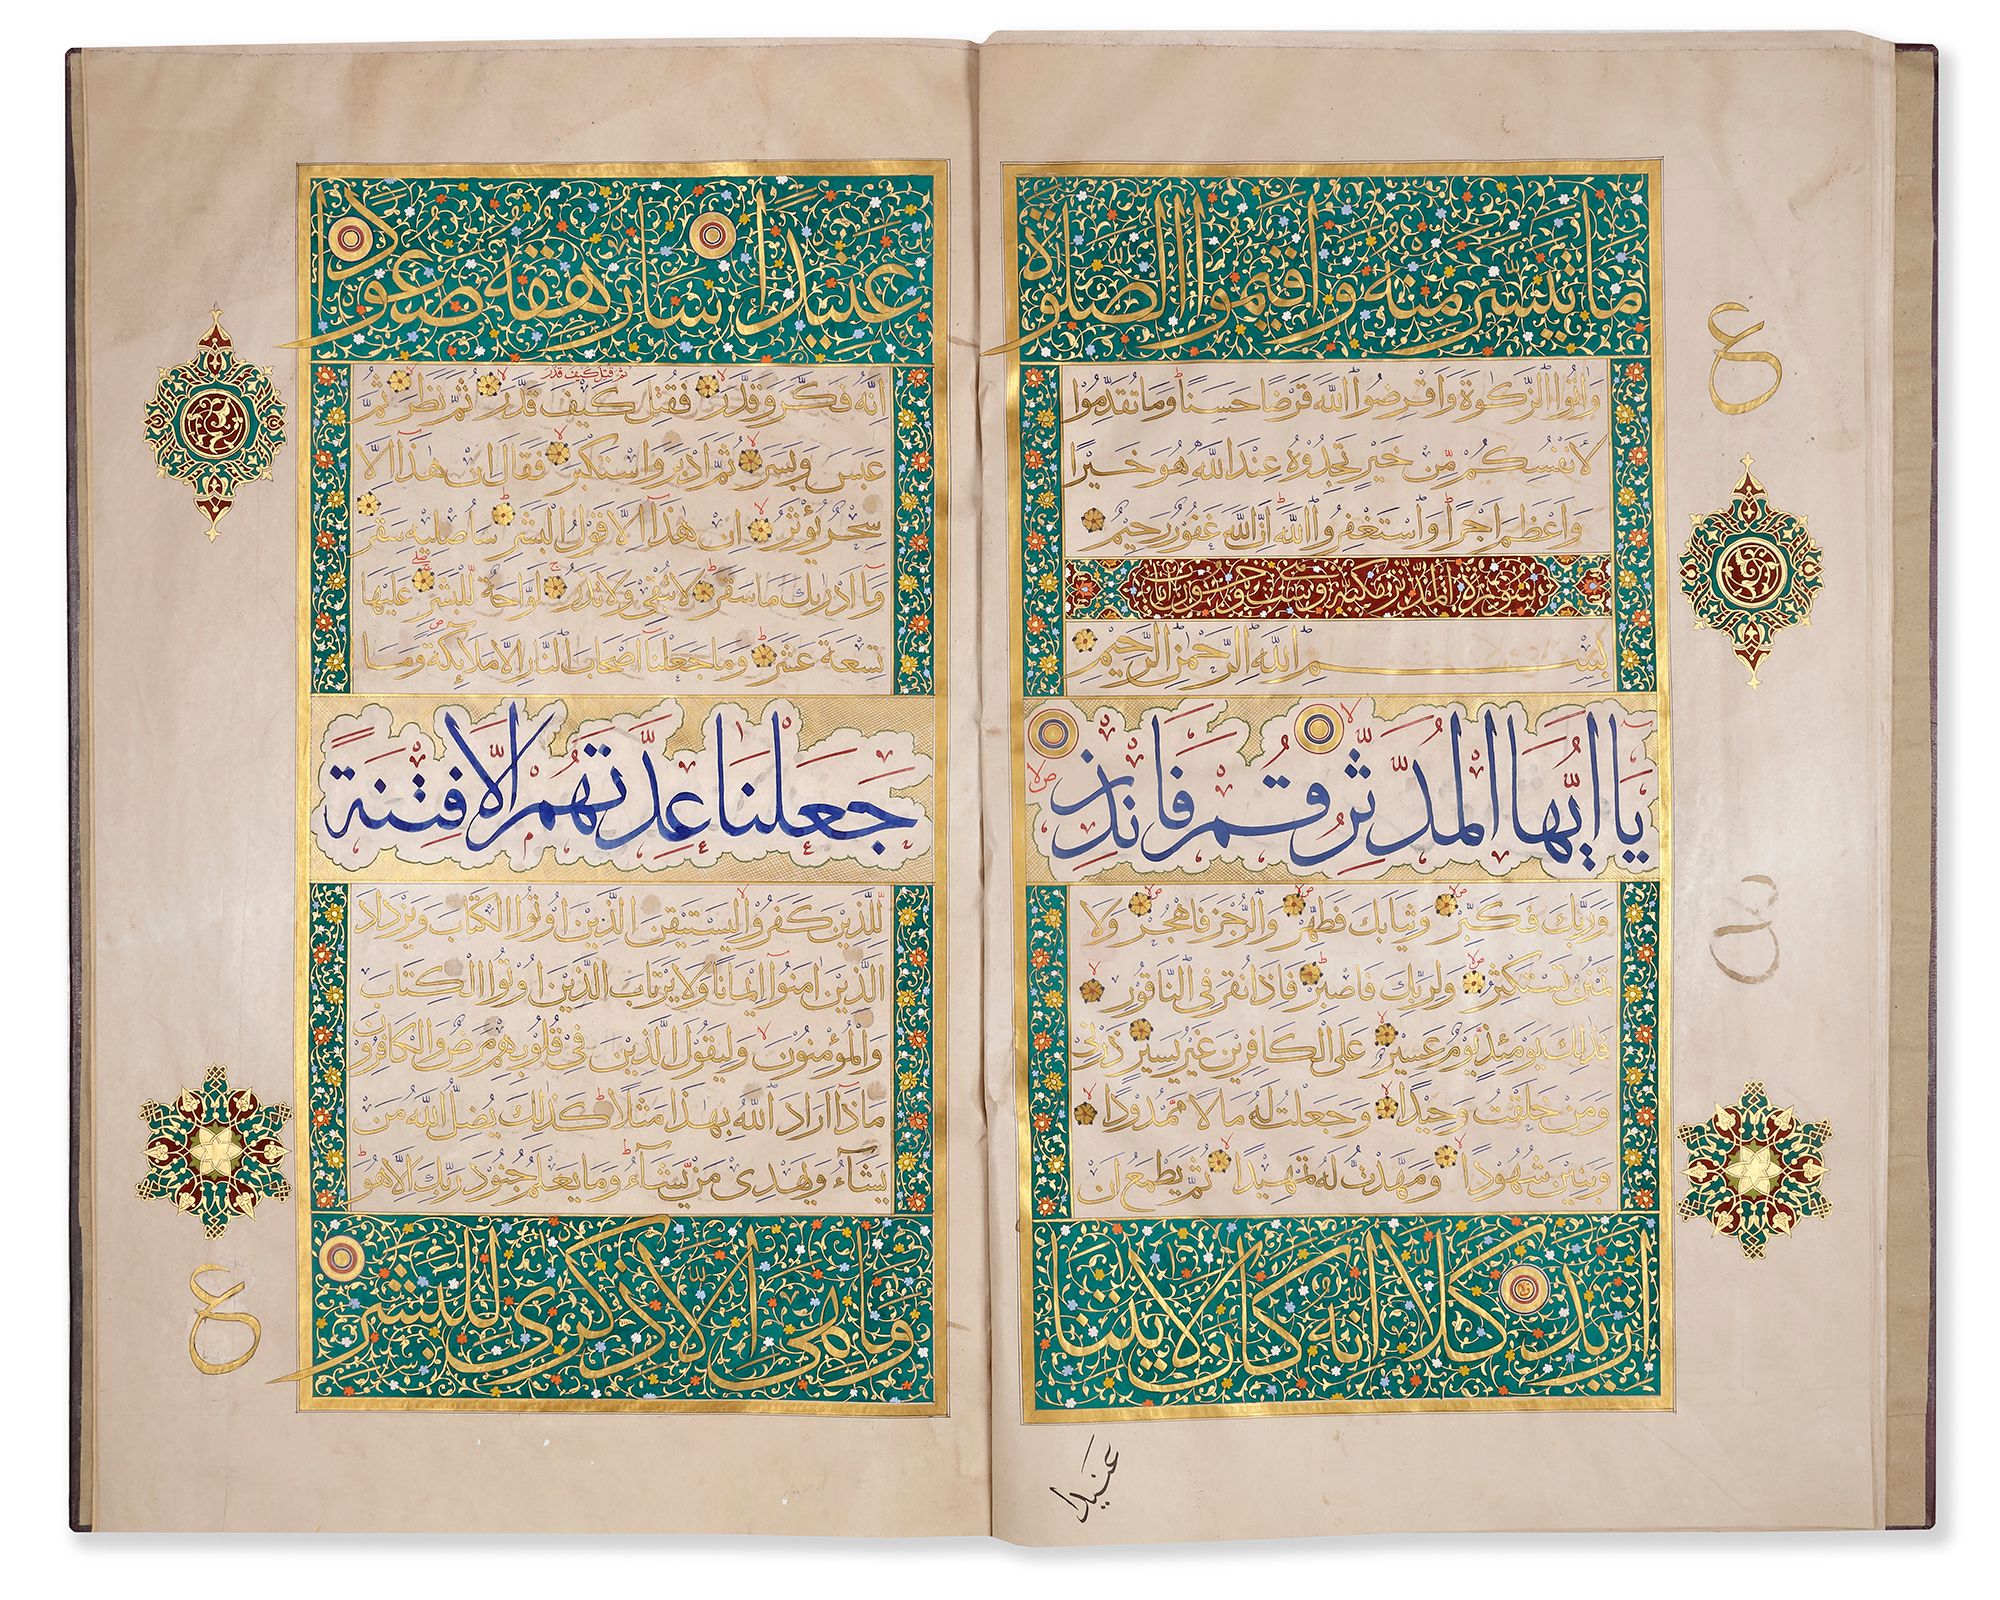 مَا تَيَسَّرَ مِنْهُ وَاَقِيمُوا الصَّلٰوةَ
وَاٰتُوا الزَّكٰوةَ وَاَقْرِضُوا اللّٰهَ قَرْضًا حَسَنًا وَمَا تُقَدِّمُوا
لِاَنْفُسِكُمْ مِنْ خَيْرٍ تَجِدُوهُ عِنْدَ اللّٰهِ هُوَ خَيْرًا
وَاَعْظَمَ اَجْرًا وَاسْتَغْفِرُوا اللّٰهَ اِنَّ اللّٰهَ غَفُورٌ رَحِيمٌ
سورة المدثر مكية
بِسْمِ اللّٰهِ الرَّحْمٰنِ الرَّحِيمِ
يَا اَيُّهَا الْمُدَّثِّرُ قُمْ فَاَنْذِرْ
وَرَبَّكَ فَكَبِّرْ وَثِيَابَكَ فَطَهِّرْ وَالرُّجْزَ فَاهْجُرْ وَلَا
تَمْنُنْ تَسْتَكْثِرُ وَلِرَبِّكَ فَاصْبِرْ فَاِذَا نُقِرَ فِى النَّاقُورِ
فَذٰلِكَ يَوْمَئِذٍ يَوْمٌ عَسِيرٌ عَلَى الْكَافِرِينَ غَيْرُ يَسِيرٍ ذَرْنِى
وَمَنْ خَلَقْتُ وَحِيدًا وَجَعَلْتُ لَهُ مَالًا مَمْدُودًا
وَبَنِينَ شُهُودًا وَمَهَّدْتُ لَهُ تَمْهِيدًا ثُمَّ يَطْمَعُ اَنْ
اَزِيدَ كَلَّا اِنَّهُ كَانَ لِاٰيَاتِنَا
عنيدا
ع
عَنِيدًا سَاُرْهِقُهُ صَعُودًا
ثم قتل كيف قدر
اِنَّهُ فَكَّرَ وَقَدَّرَ فَقُتِلَ كَيْفَ قَدَّرَ ثُمَّ نَظَرَ ثُمَّ
عَبَسَ وَبَسَرَ ثُمَّ اَدْبَرَ وَاسْتَكْبَرَ فَقَالَ اِنْ هٰذَا اِلَّا
سِحْرٌ يُؤْثَرُ اِنْ هٰذَا اِلَّا قَوْلُ الْبَشَرِ سَاُصْلِيهِ سَقَرَ
وَمَا اَدْرٰيكَ مَا سَقَرُ لَا تُبْقِى وَلَا تَذَرُ لَوَّاحَةٌ لِلْبَشَرِ عَلَيْهَا
تِسْعَةَ عَشَرَ وَمَا جَعَلْنَا اَصْحَابَ النَّارِ اِلَّا مَلٰئِكَةً وَمَا
جَعَلْنَا عِدَّتَهُمْ اِلَّا فِتْنَةً
لِلَّذِينَ كَفَرُوا لِيَسْتَيْقِنَ الَّذِينَ اُوتُوا الْكِتَابَ وَيَزْدَادَ
الَّذِينَ اٰمَنُوا اِيمَانًا وَلَا يَرْتَابَ الَّذِينَ اُوتُوا الْكِتَابَ
وَالْمُؤْمِنُونَ وَلِيَقُولَ الَّذِينَ فِى قُلُوبِهِمْ مَرَضٌ وَالْكَافِرُونَ
مَاذَا اَرَادَ اللّٰهُ بِهٰذَا مَثَلًا كَذٰلِكَ يُضِلُّ اللّٰهُ مَنْ
يَشَاءُ وَيَهْدِى مَنْ يَشَاءُ وَمَا يَعْلَمُ جُنُودَ رَبِّكَ اِلَّا هُوَ
وَمَا هِىَ اِلَّا ذِكْرٰى لِلْبَشَرِ
ع